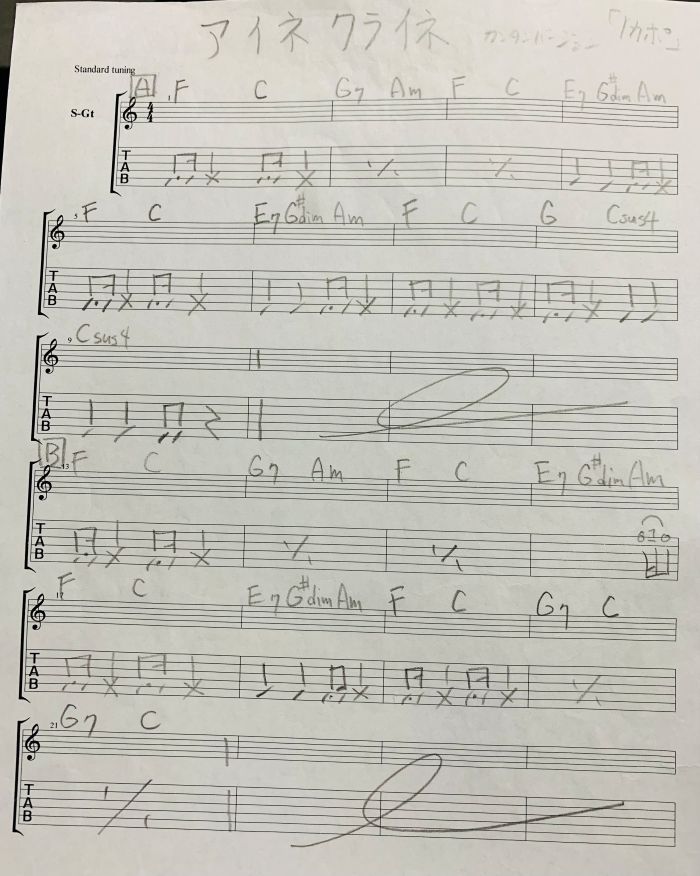 アイネクライネ カンタンバージョン 「1カポ」
Standard tuning
S-Gt
A 1 F C G7 Am F C E7 G#dim Am
4 4
T A B
5 F C E7 G#dim Am F C G Csus4
T A B
9 Csus4
T A B
B 13 F C G7 Am F C E7 G#dim Am
T A B 0 1 0
F C E7 G#dim Am F C G7 C
T A B
21 G7 C
T A B